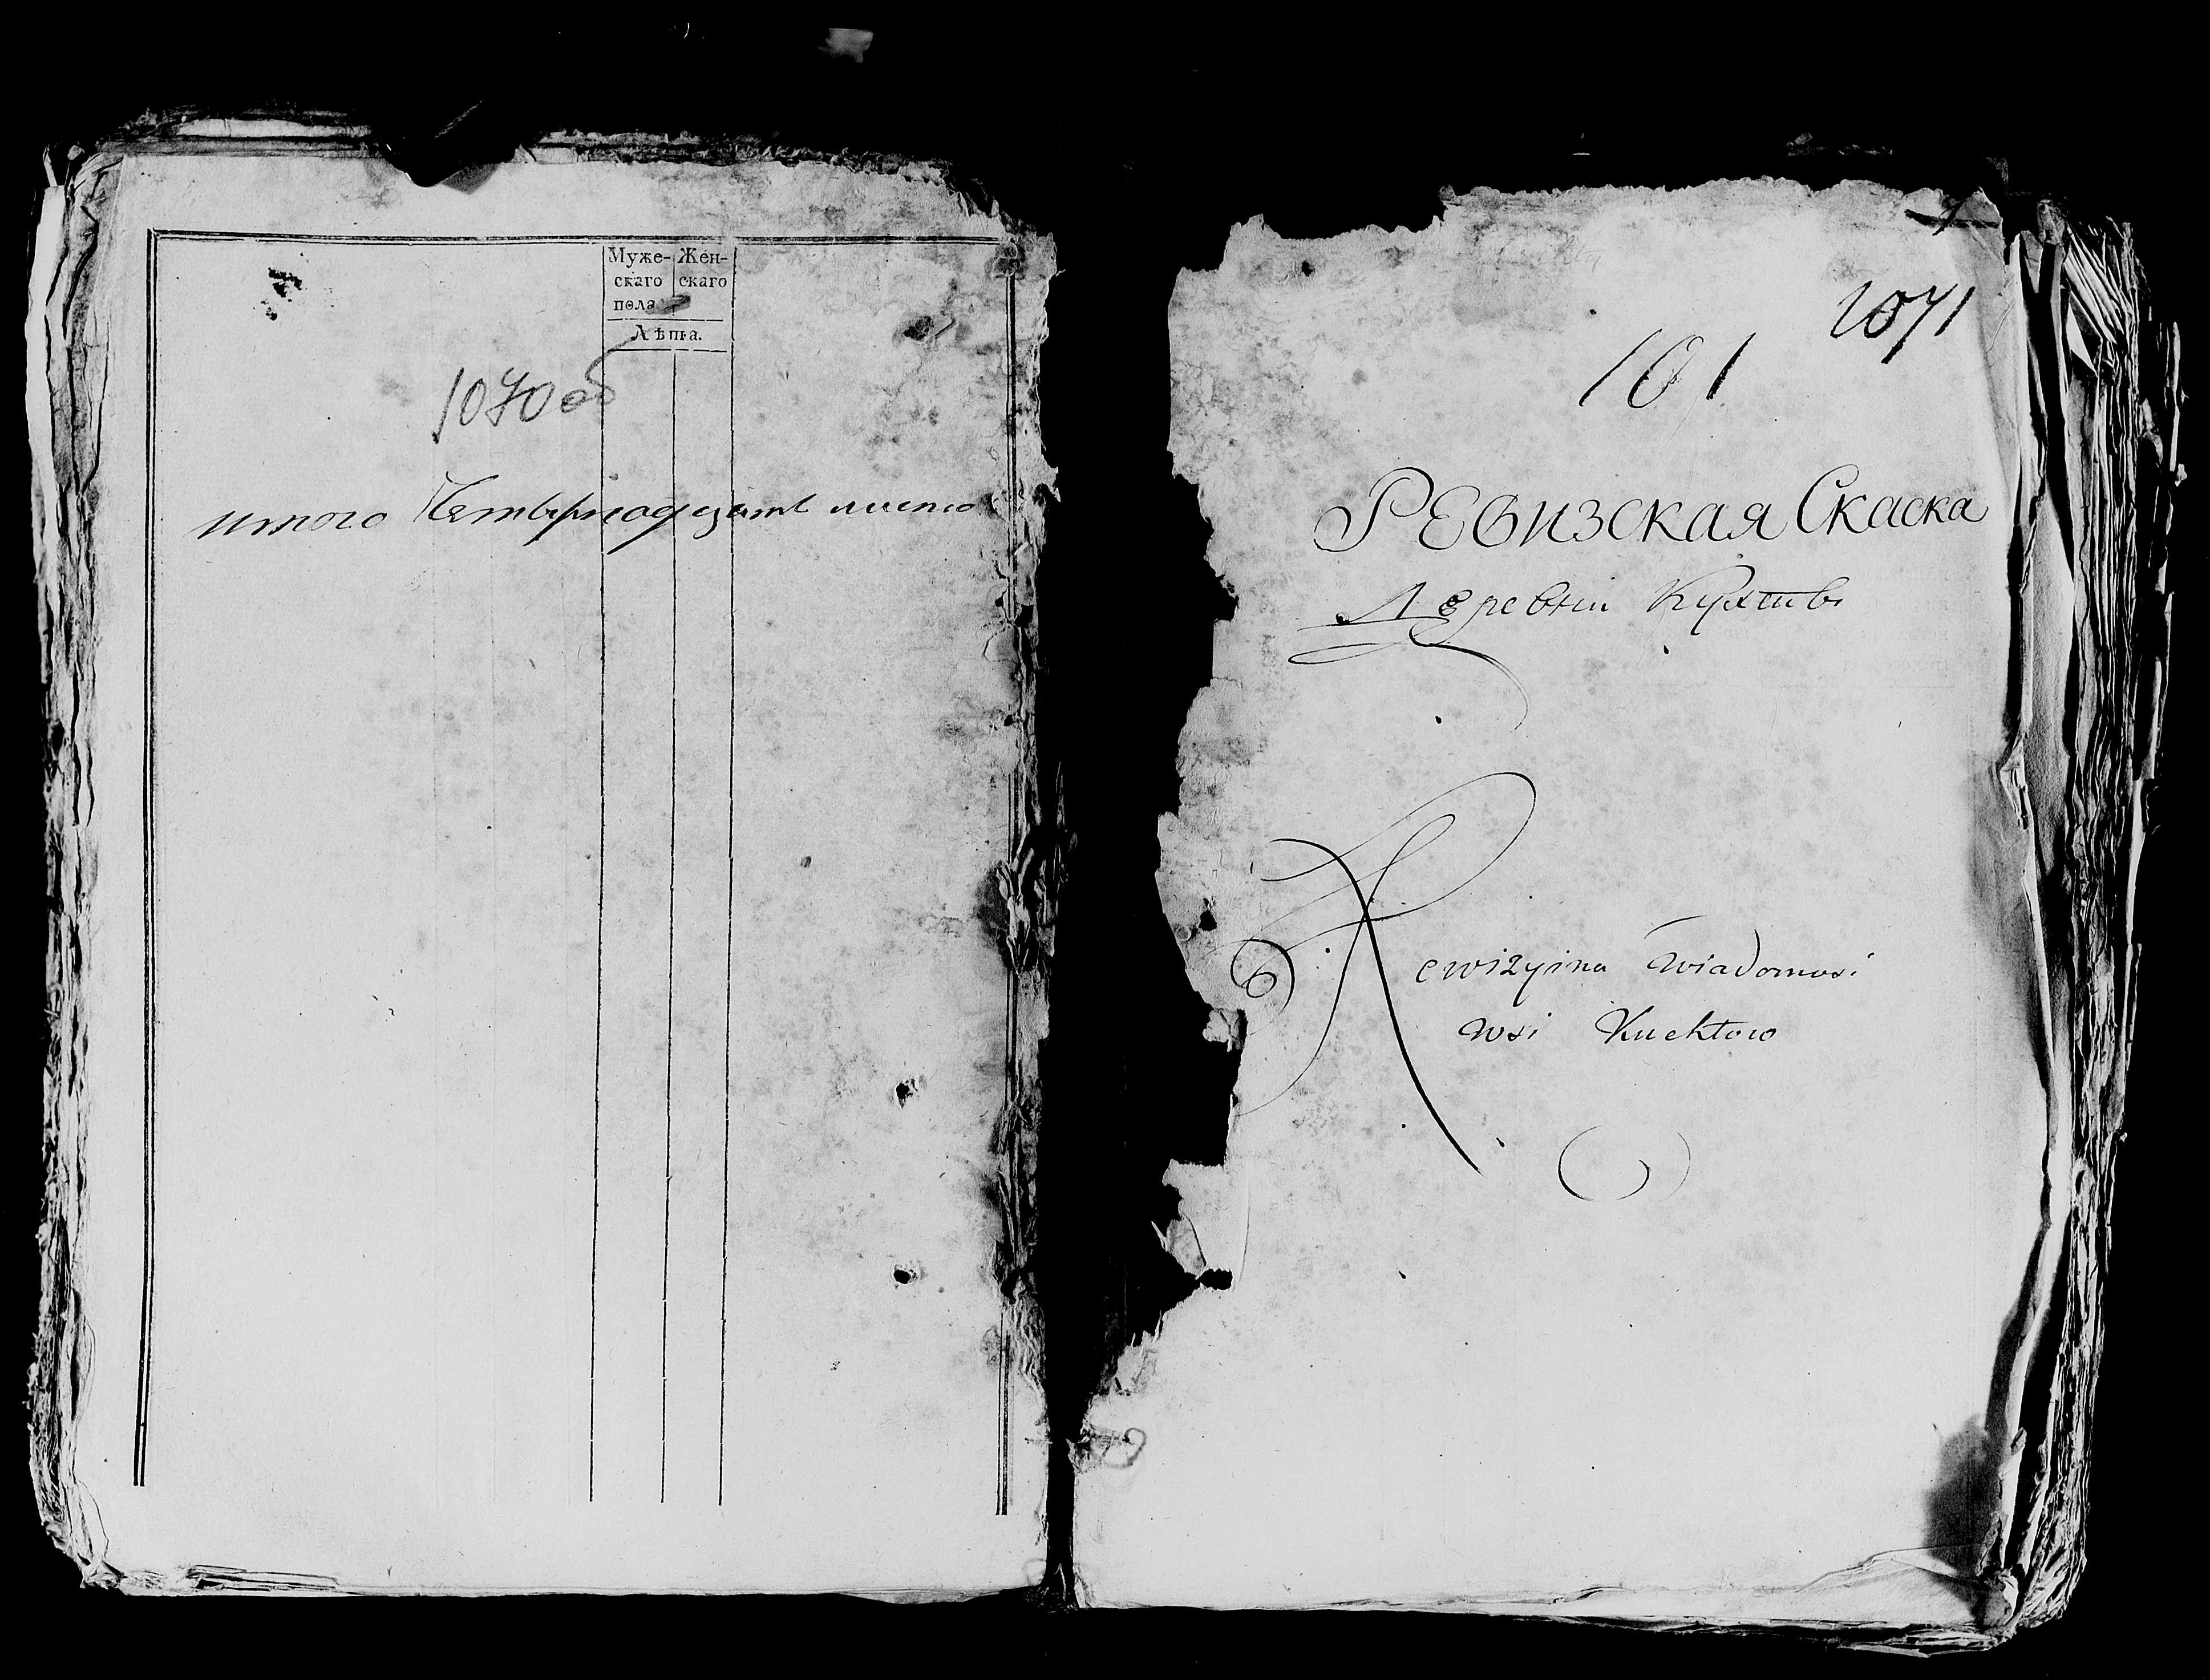 Муже- Жен-
скаго скаго
пола
Лѣта.
1070 об
итого Четырнадцать листо
1071
101
Ревизская Скаска
Деревни Кухтовъ
Rewizyina Wiadomosi
wsi Kuchtow